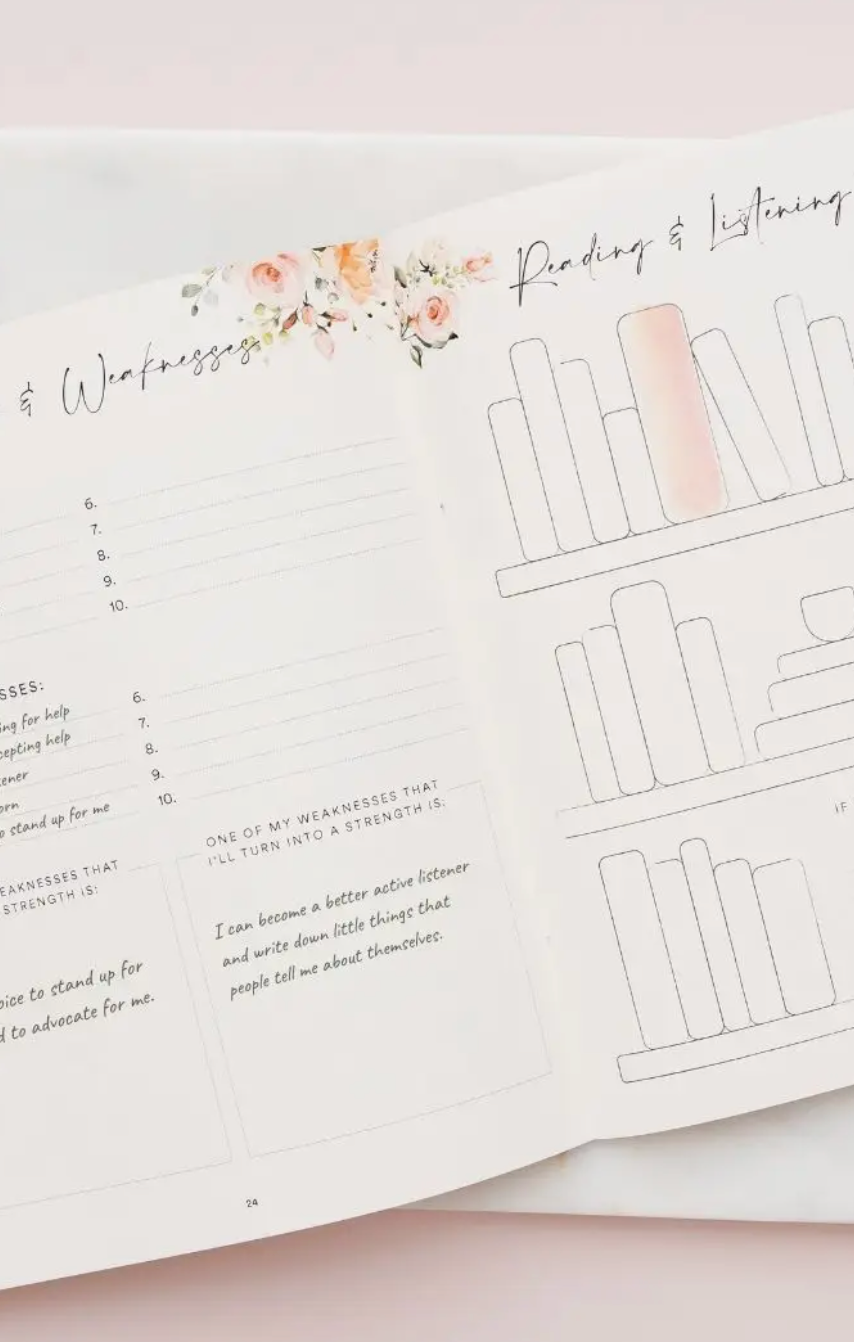 & Weaknesses
6.
7.
8.
9.
10.
SSES:
ing for help
cepting help
tener
orn
o stand up for me
6.
7.
8.
9.
10.
EAKNESSES THAT
STRENGTH IS:
oice to stand up for
d to advocate for me.
ONE OF MY WEAKNESSES THAT
I'LL TURN INTO A STRENGTH IS:
I can become a better active listener
and write down little things that
people tell me about themselves.
24
Reading & Listening
IF